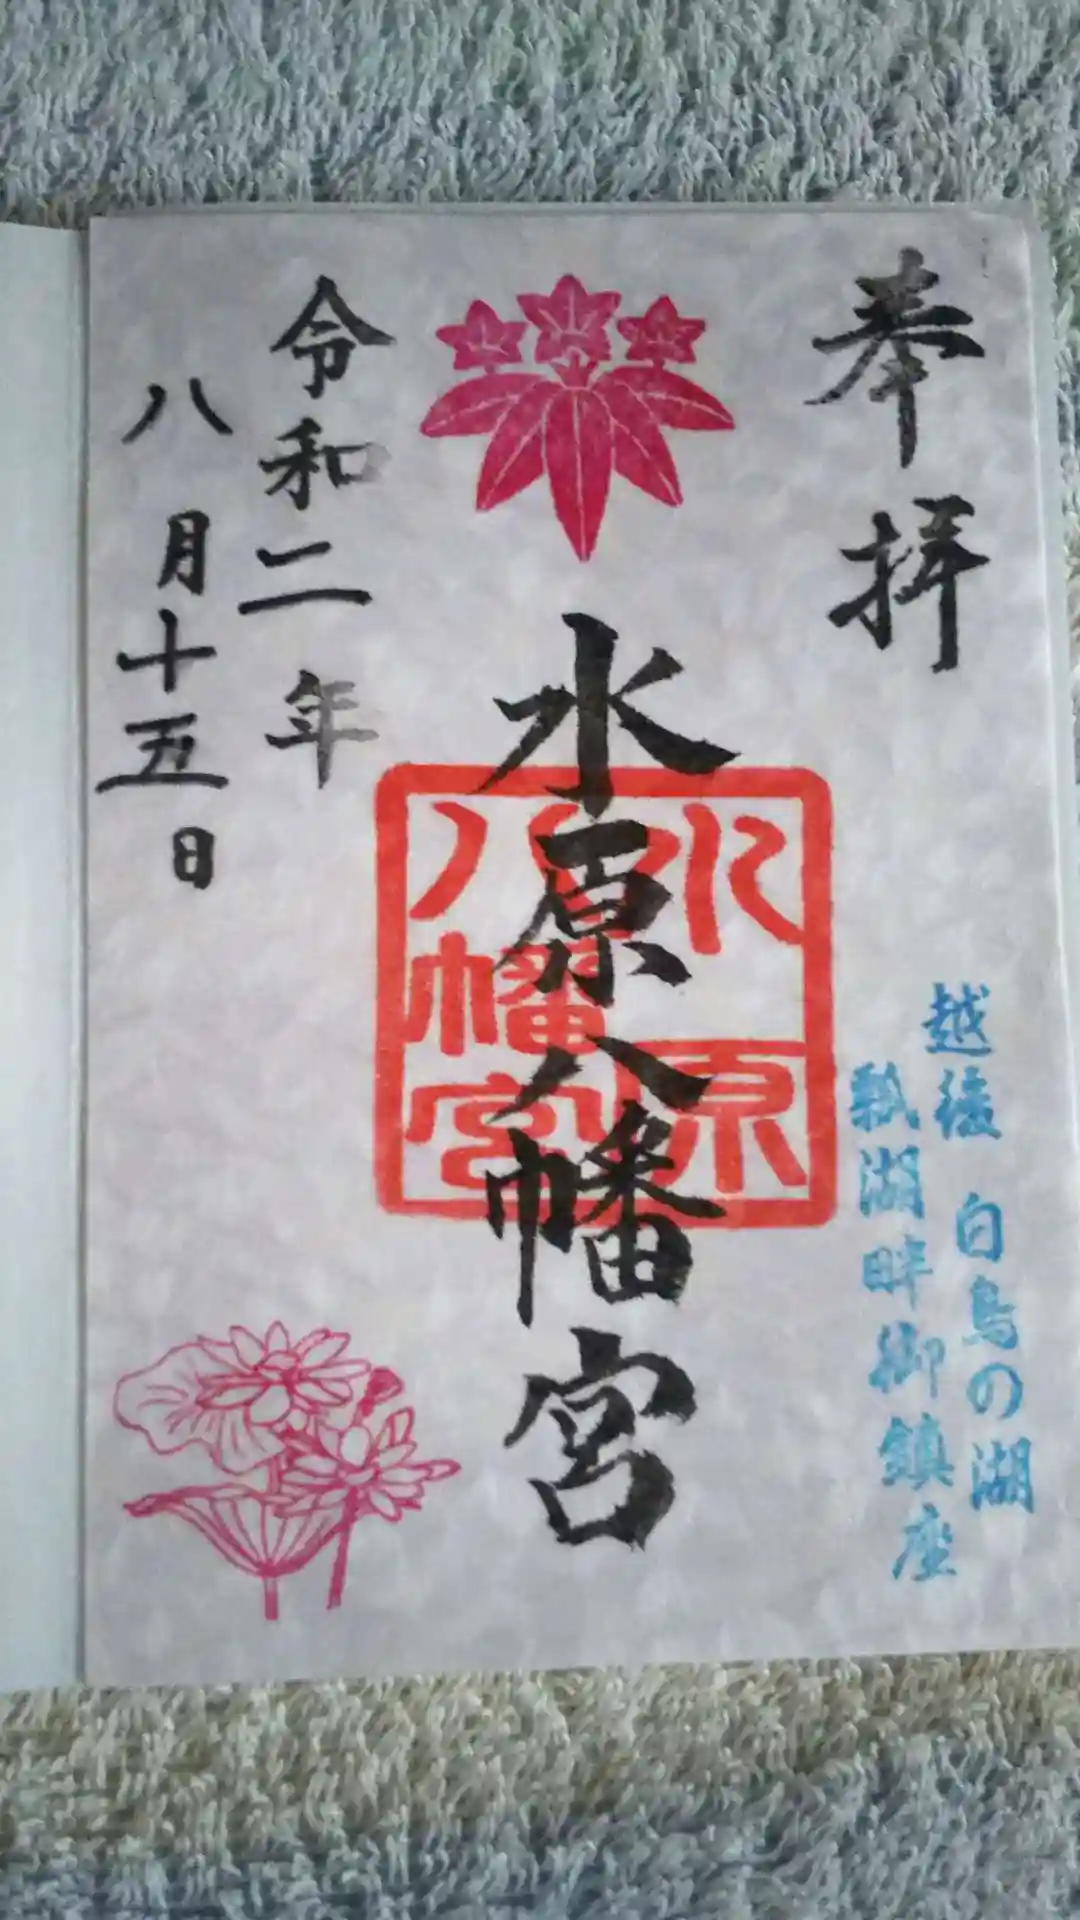 奉拝
越後 白鳥の湖
瓢湖畔御鎮座
水原八幡宮
水原
八幡宮
令和二年
八月十五日